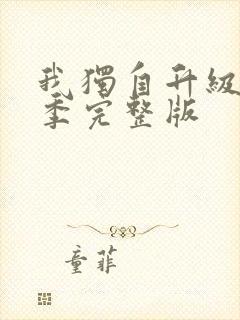 我獨自升級
季完整版
童菲